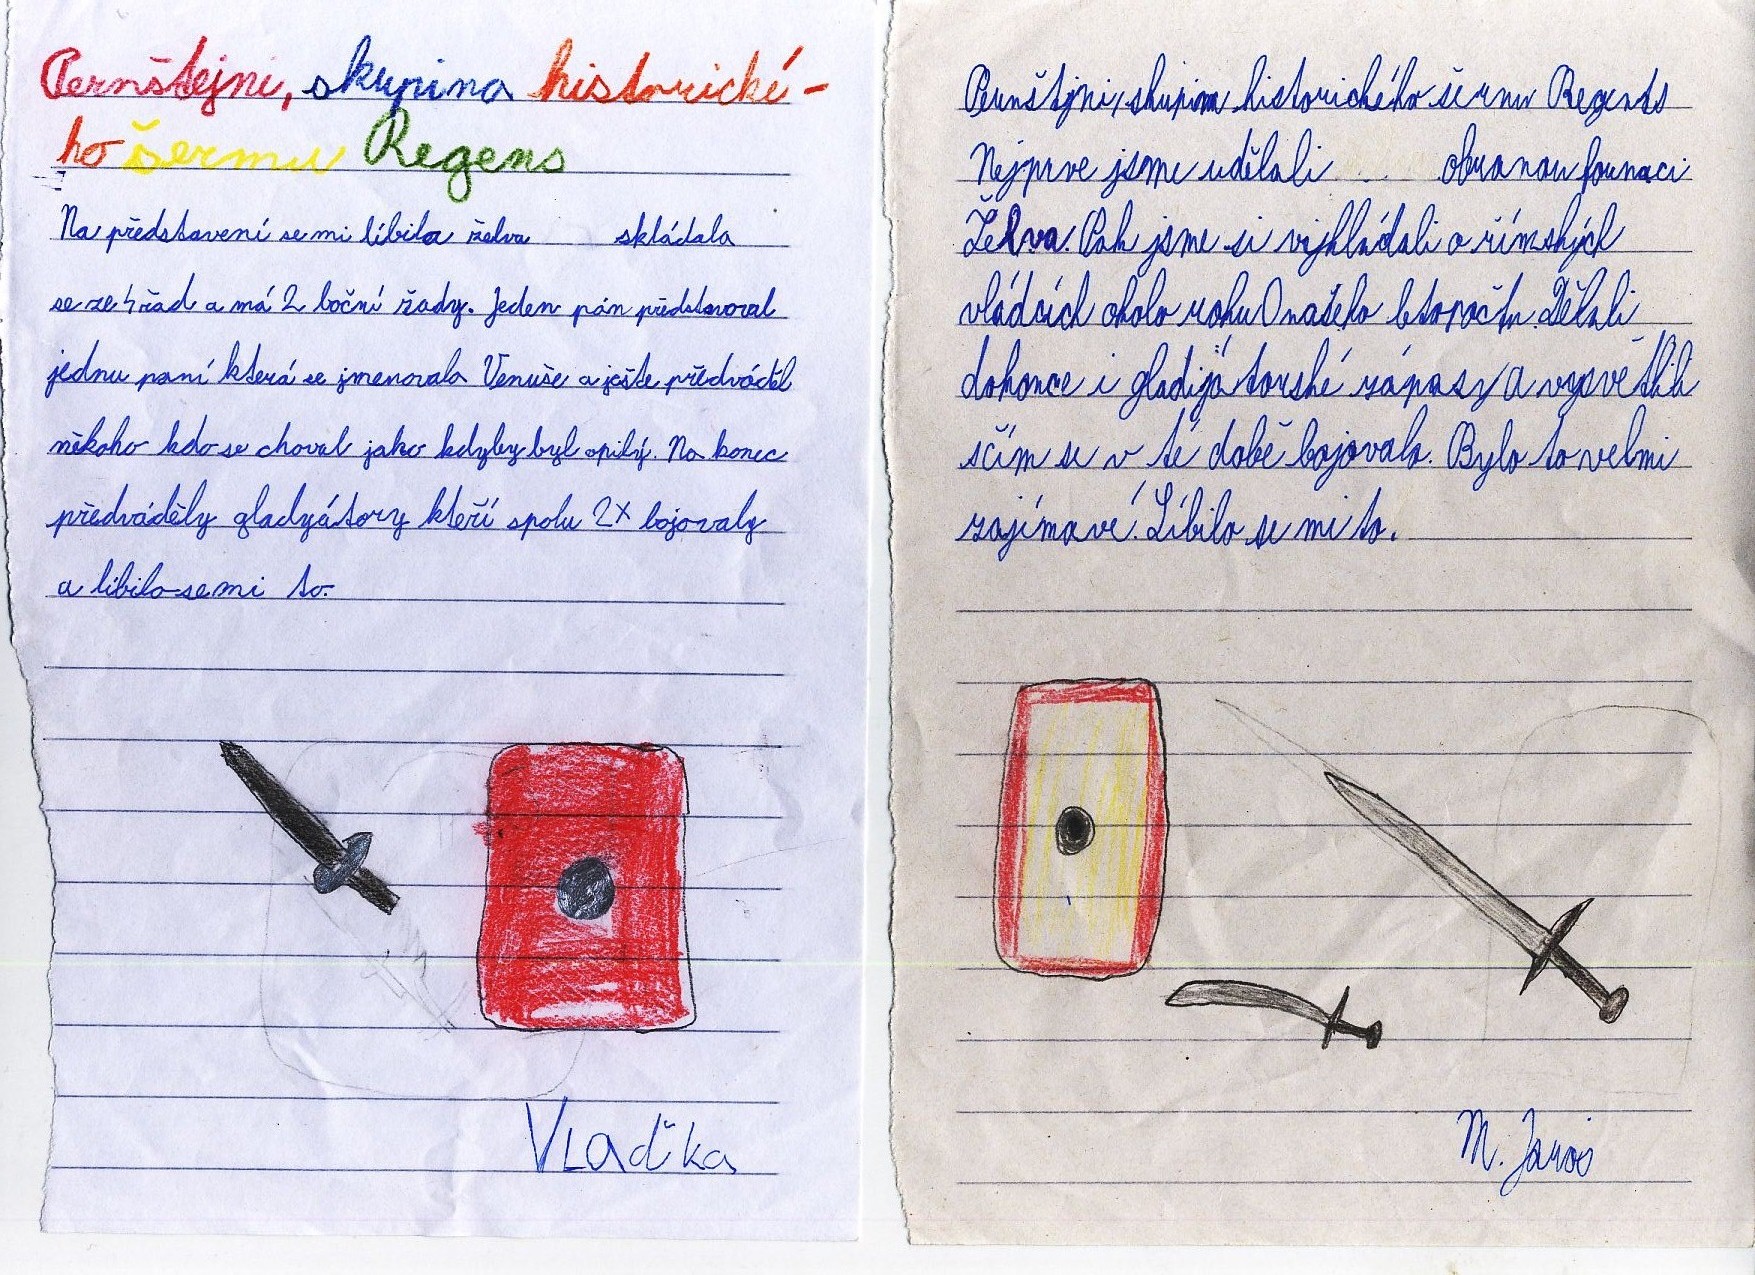 Pernštejni, skupina historické-
ho šermu Regens
Na představení se mi líbila želva skládala
se ze 4 řad a má 2 boční řady. Jeden pán představoval
jednu paní která se jmenovala Venuše a ješte předváděl
někoho kdo se choval jako kdyby byl opilý. Na konec
předváděly gladyátory kteří spolu 2x bojovaly
a libilo se mi to.
Vlaďka
Pernštejni, skupina historického šermu Regents
Nejprve jsme udělali obranou formaci
Želva. Pak jsme si vyhládali o římských
vládcích okolo roku 0 našeho letopočtu. Dělali
dokonce i gladijátorské zápasy a vysvětlili
sčím se v té době bojovalo. Bylo to velmi
zajímavé. Líbilo se mi to.
M. Jaroš